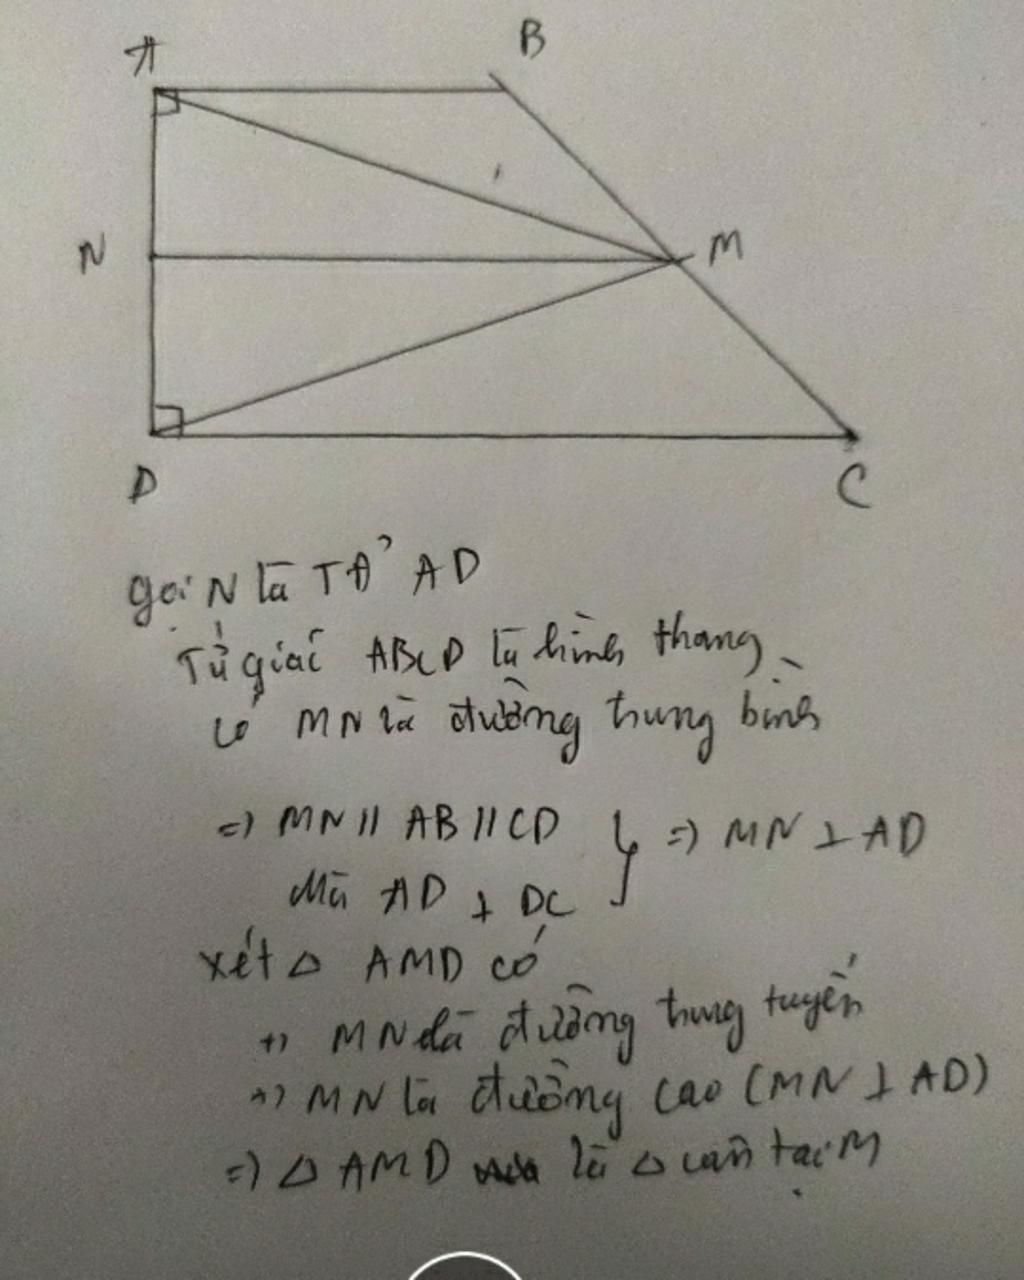 A
B
N
M
D
C
gọi N là TĐ' AD
Tứ giác ABCD là hình thang
có MN là đường trung bình
=) MN // AB // CD } =) MN ⊥ AD
Mà AD ⊥ DC
xét Δ AMD có
+) MN là đường trung tuyến
+) MN là đường cao (MN ⊥ AD)
=) Δ AMD là Δ cân tại M